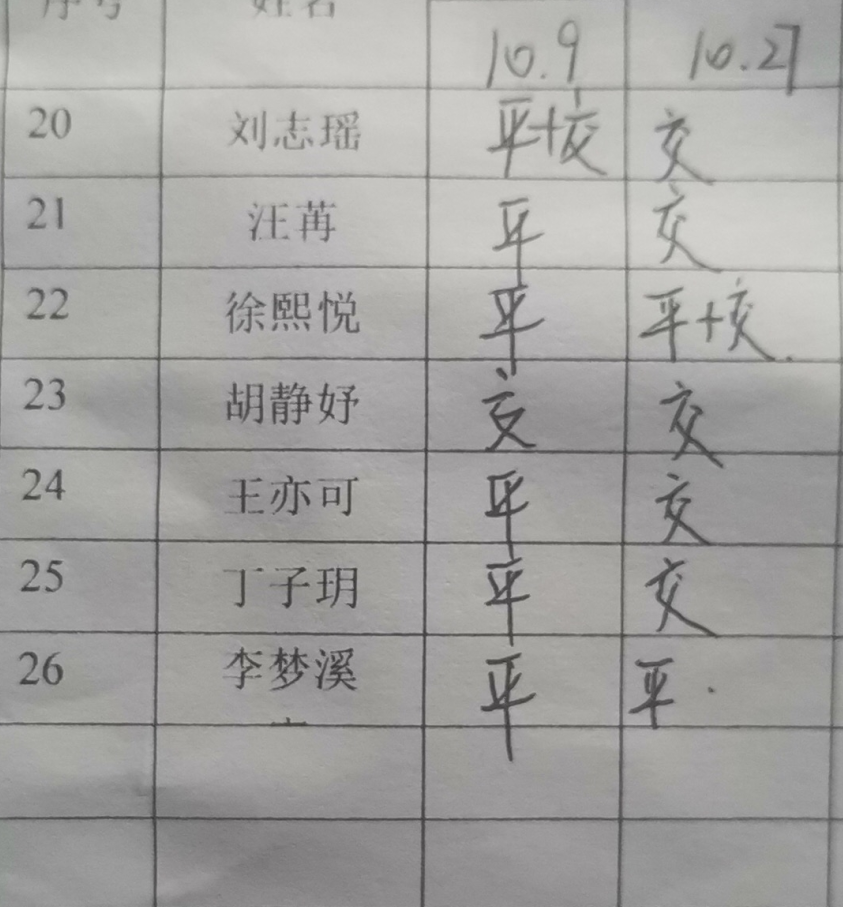 序号 姓名 10.9 10.27
20 刘志瑶 平+交 交
21 汪苒 平 交
22 徐熙悦 平 平+交.
23 胡静妤 交 交
24 王亦可 平 交
25 丁子玥 平 交
26 李梦溪 平 平.